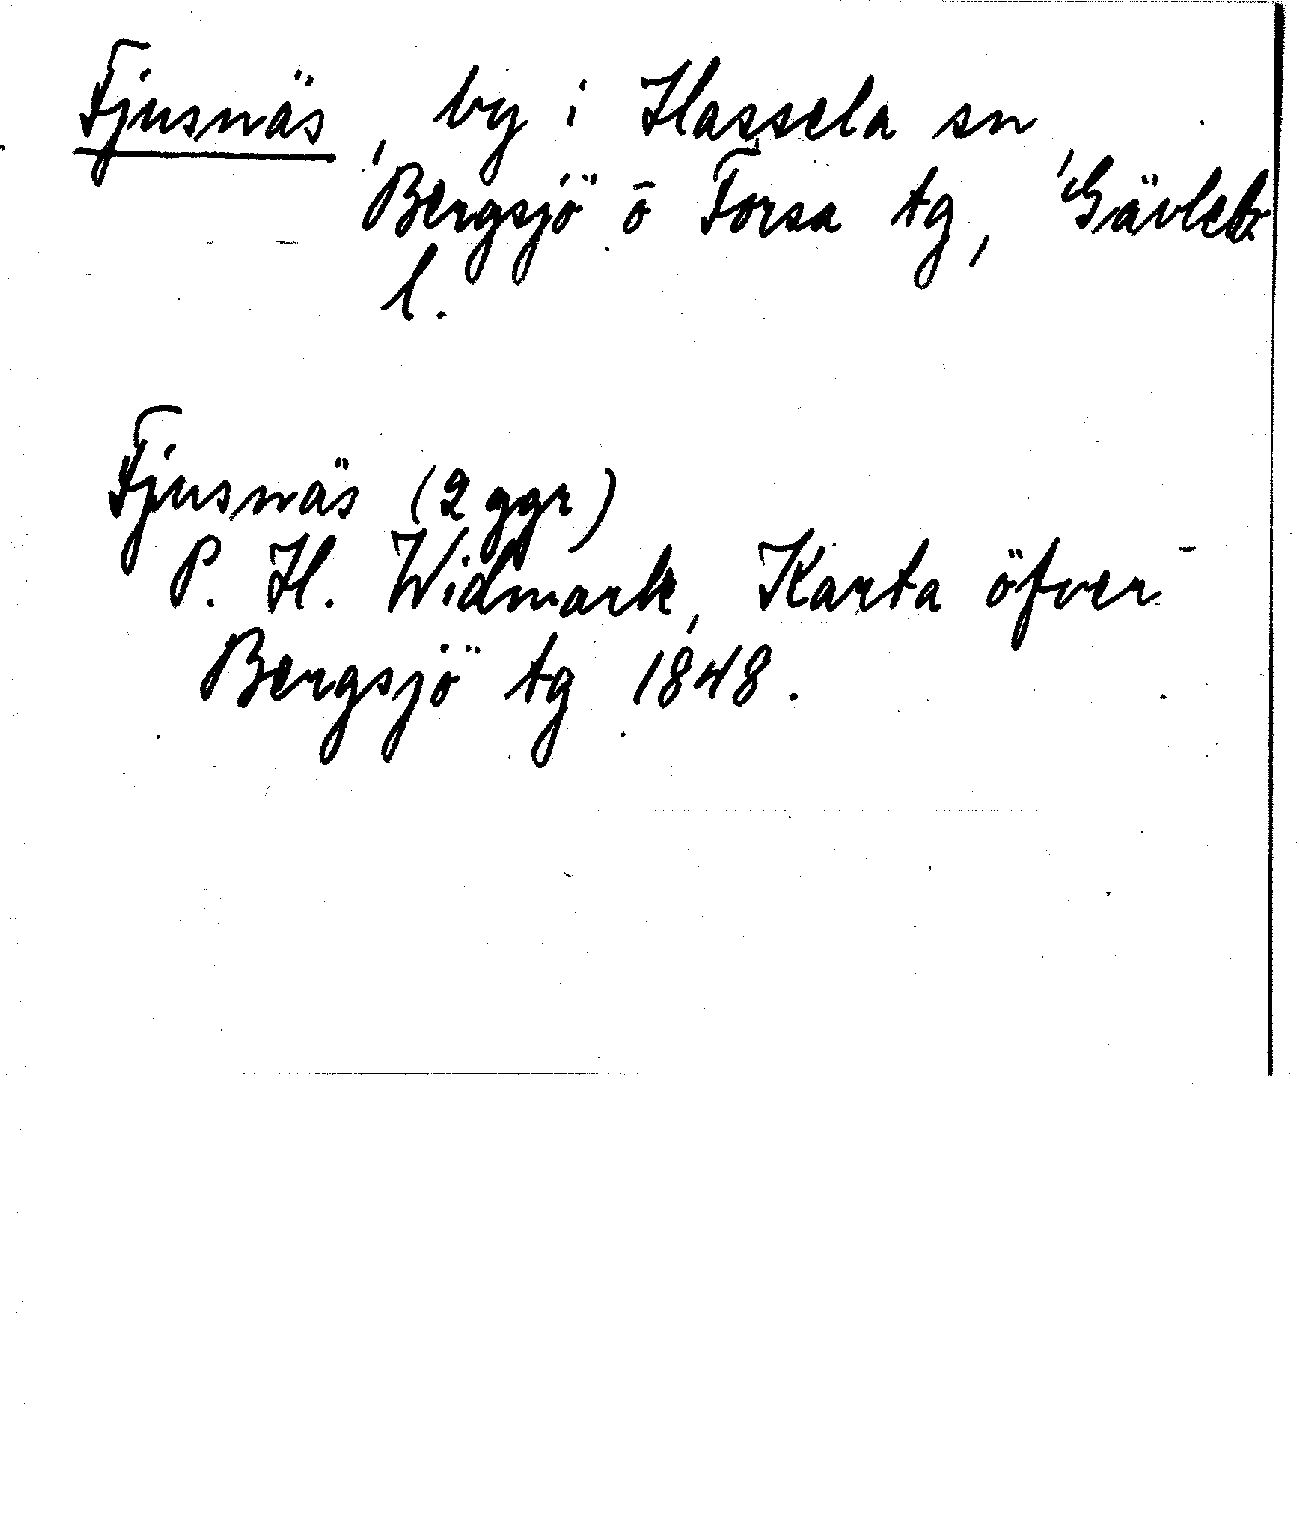 Fjusnäs, by i Hassela sn,
Bergsjö o Forsa tg, Gävleb.
l.
Fjusnäs (2 ggr)
P. H. Widmark, Karta öfver
Bergsjö tg 1848.